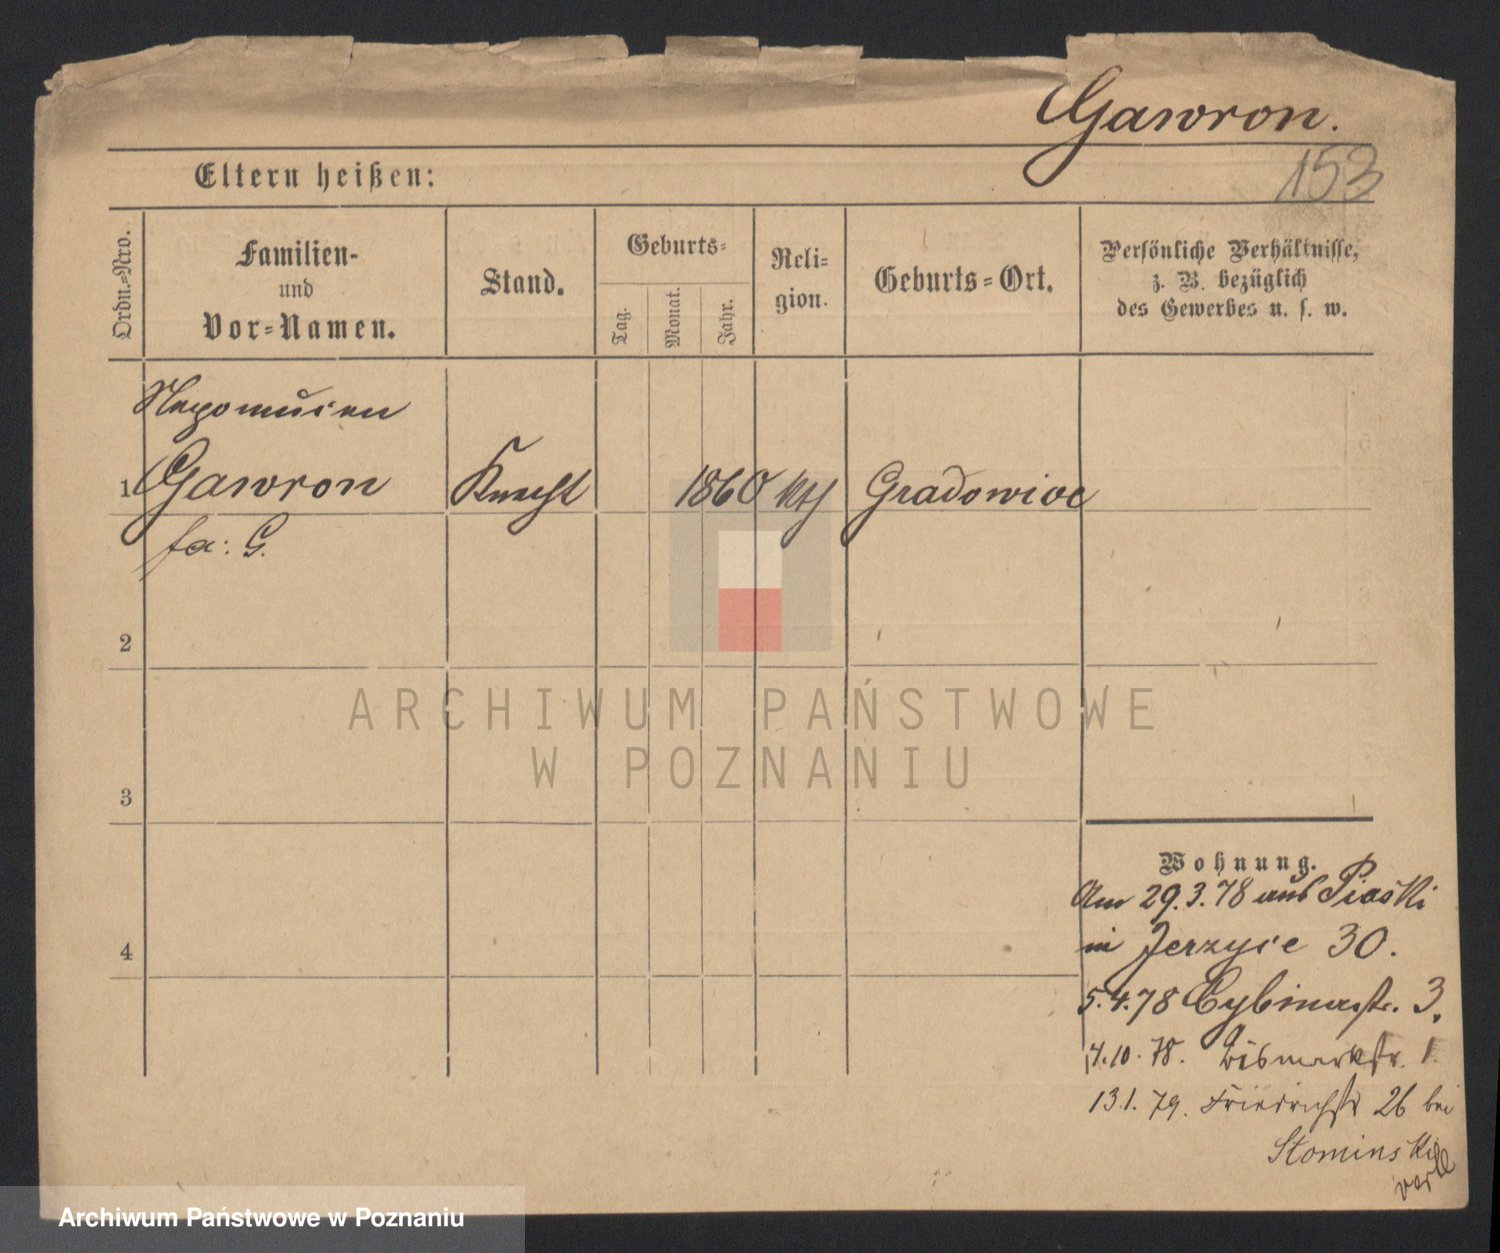 Gawron.
153
Eltern heißen:
Ordn.-Nro.
Familien-
und
Vor-Namen.
Stand.
Geburts-
Tag.
Monat.
Jahr.
Reli-
gion.
Geburts-Ort.
Persönliche Verhältnisse,
z. B. bezüglich
des Gewerbes u. s. w.
Nepomucen
1 Gawron Knecht 1860 kth Gradowice
fa: G.
2
3
4
Wohnung.
Am 29.3.78 aus Piaski
in Jerzyce 30.
5.4.78 Cybinastr. 3.
4.10.78. Bismarkstr. 1.
13.1.79. Friedrichstr 26 bei
Stominski
ARCHIWUM PAŃSTWOWE
W POZNANIU
Archiwum Państwowe w Poznaniu